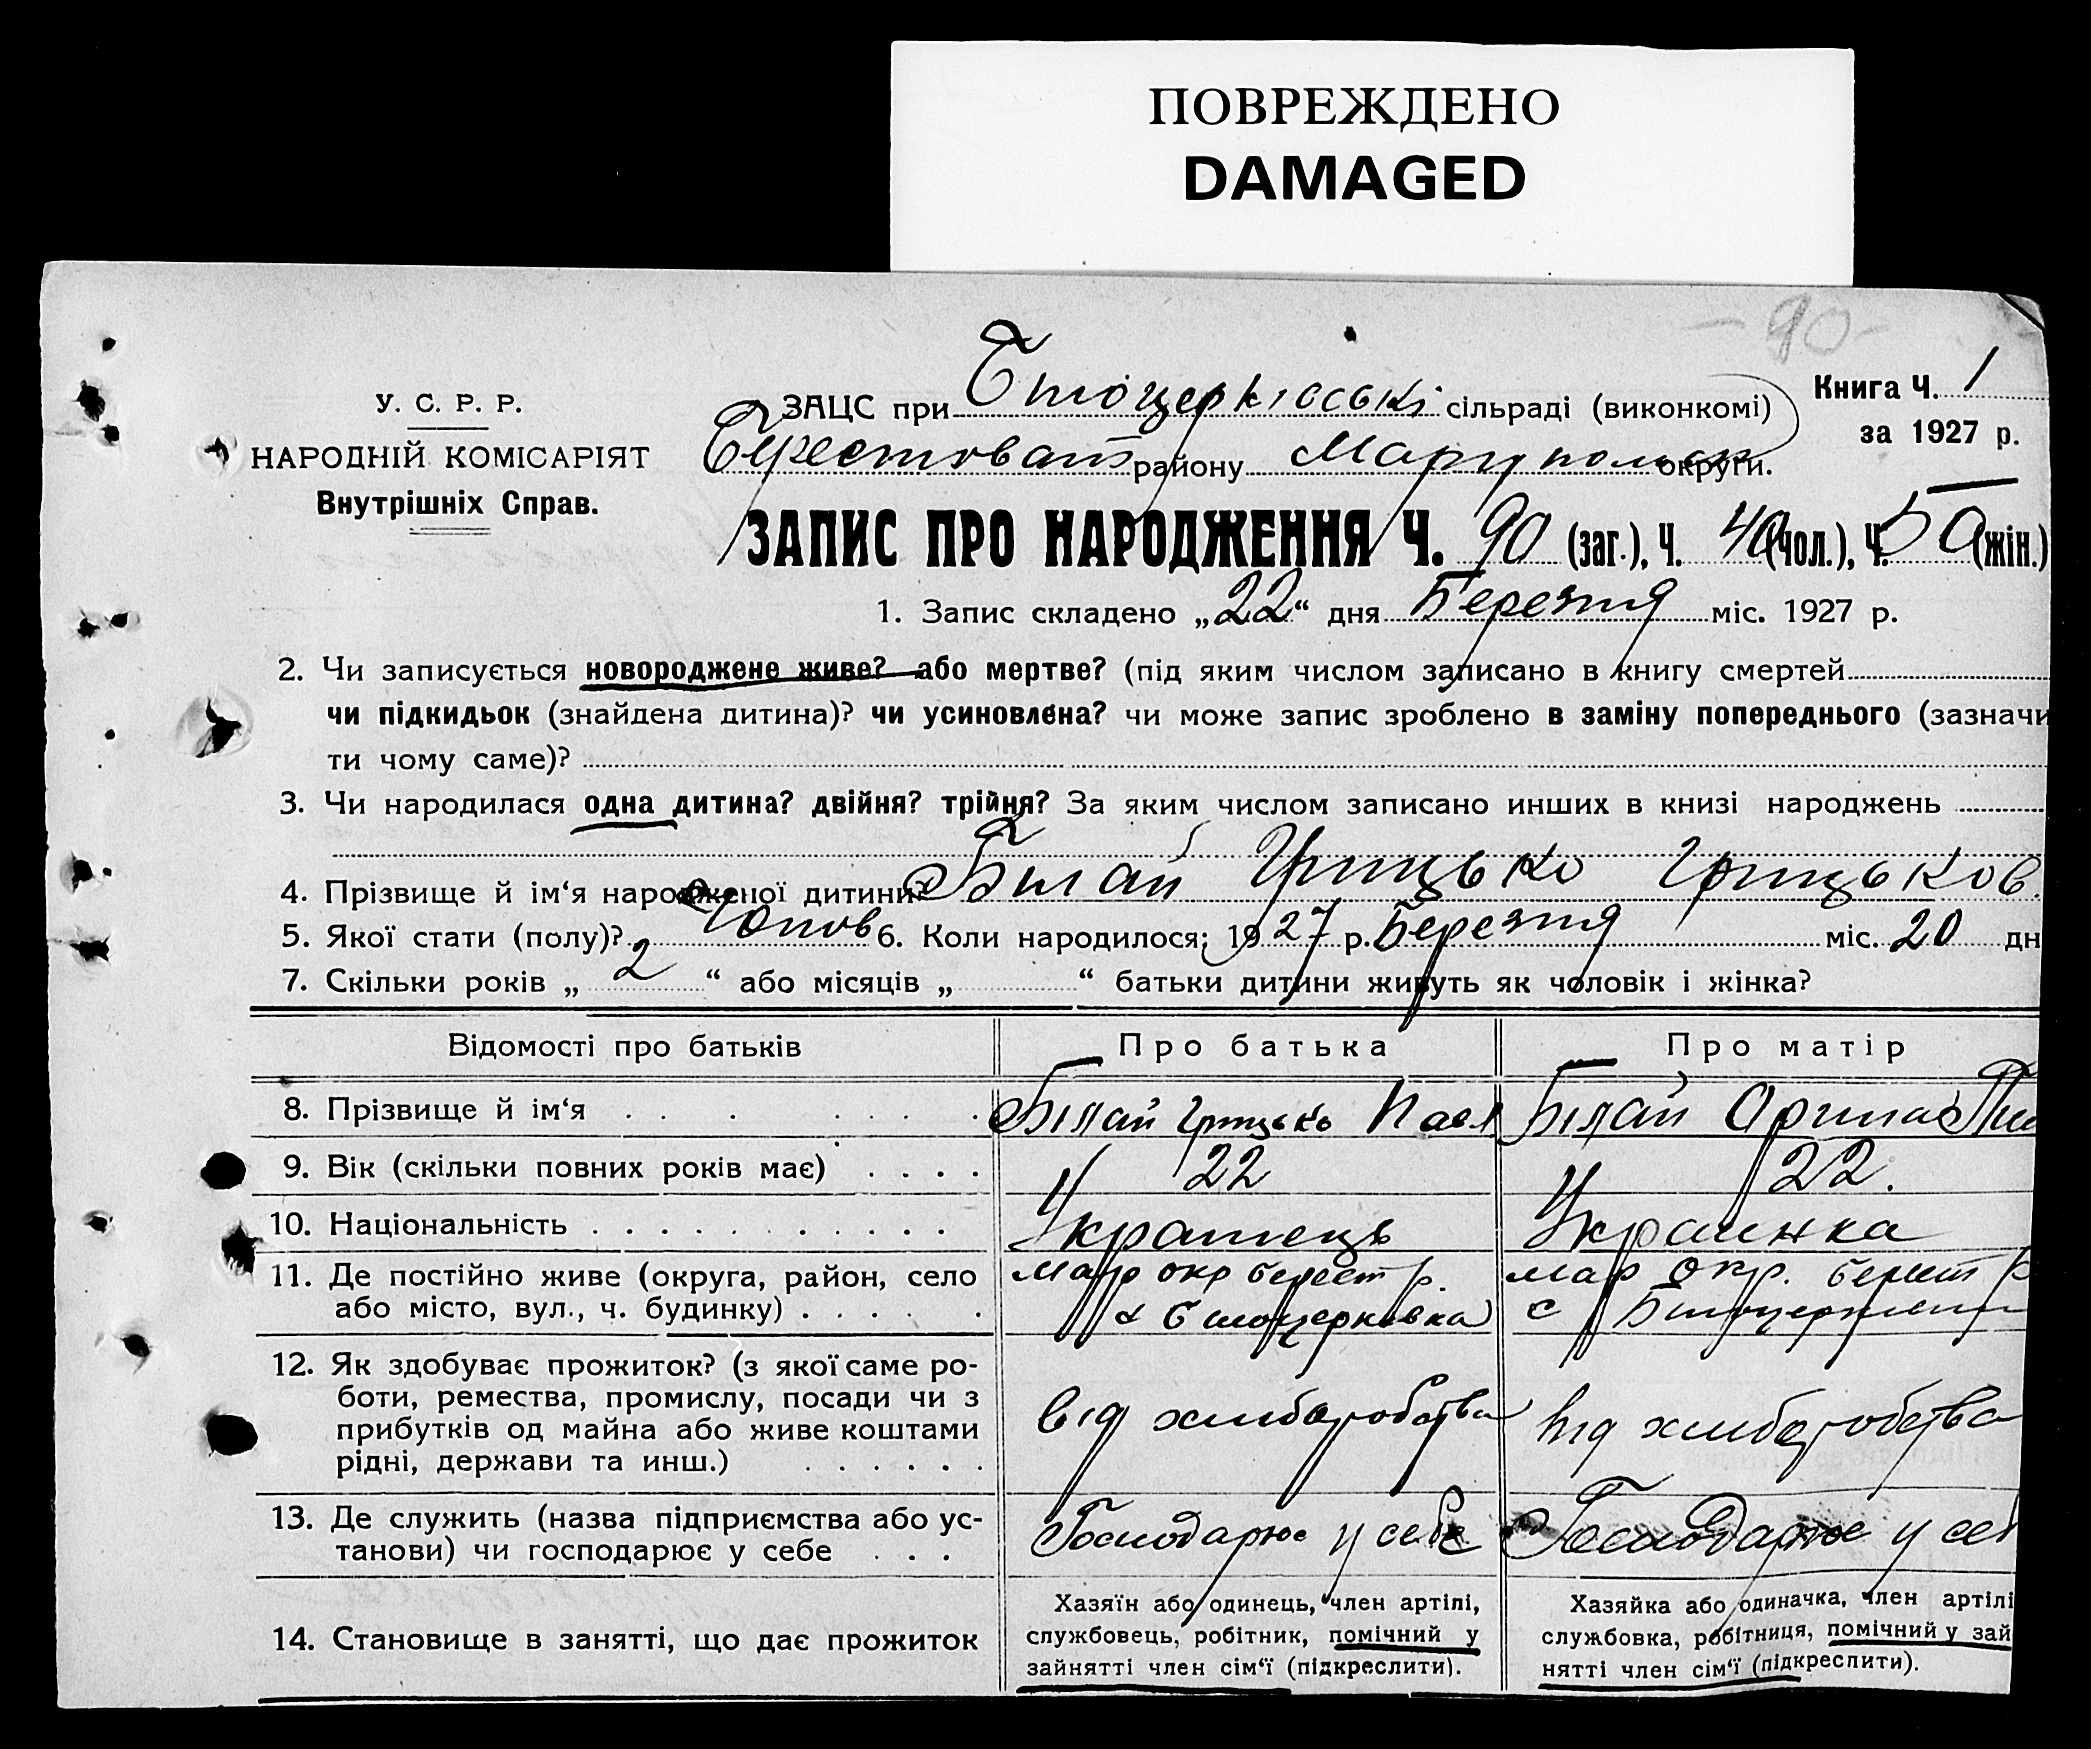 ПОВРЕЖДЕНО
DAMAGED
-90-
У. С. Р. Р.
НАРОДНІЙ КОМІСАРІЯТ
Внутрішніх Справ.
ЗАЦС при Білоцерківські сільраді (виконкомі)
Берестоват району Маріупольск округи.
Книга Ч. 1
за 1927 р.
ЗАПИС ПРО НАРОДЖЕННЯ Ч. 90 (заг.), Ч. 40 (чол.), Ч. 50 (жін.)
1. Запис складено „22“ дня Березня міс. 1927 р.
2. Чи записується новороджене живе? або мертве? (під яким числом записано в книгу смертей
чи підкидьок (знайдена дитина)? чи усиновлена? чи може запис зроблено в заміну попереднього (зазначи
ти чому саме)?
3. Чи народилася одна дитина? двійня? трійня? За яким числом записано инших в книзі народжень
4. Прізвище й ім‘я народженої дитини? Білай Грицько Грицьков.
5. Якої стати (полу)? Чолов 6. Коли народилося; 1927 р. Березня міс. 20 дн
7. Скільки років „ 2 “ або місяців „ “ батьки дитини живуть як чоловік і жінка?
Відомості про батьків Про батька Про матір
8. Прізвище й ім‘я Білай Грицько Павл Білай Орина
9. Вік (скільки повних років має) 22 22.
10. Національність Украинець Украинка
11. Де постійно живе (округа, район, село Мар окр берест р. мар окр. берест р
або місто, вул., ч. будинку) с Білоцерковка с Білоцерковка
12. Як здобуває прожиток? (з якої саме ро-
боти, ремества, промислу, посади чи з від хлиборобства від хлиборобства
прибутків од майна або живе коштами
рідні, держави та инш.)
13. Де служить (назва підприємства або ус- Господарює у себе Господарює у себ
танови) чи господарює у себе
14. Становище в занятті, що дає прожиток
Хазяїн або одинець, член артілі,
службовець, робітник, помічний у
зайнятті член сім‘ї (підкреслити).
Хазяйка або одиначка, член артілі
службовка, робітниця, помічний у зай
нятті член сім‘ї (підкреслити).